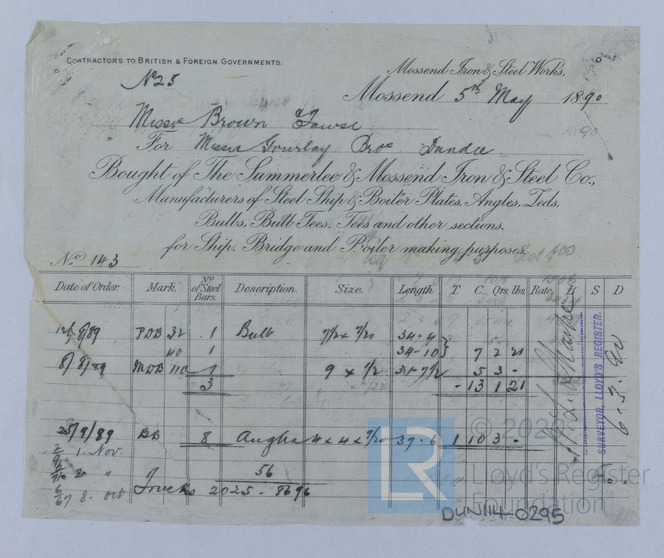 CONTRACTORS TO BRITISH & FOREIGN GOVERNMENTS.
No 25
Mossend Iron & Steel Works,
Mossend 5th May 1890
Messrs Brown Fawse
For Messrs Gourlay Bros Dundee
Bought of The Summerlee & Mossend Iron & Steel Co.,
Manufacturers of Steel Ship & Boiler Plates, Angles, Zeds,
Bulbs, Bulb Tees, Tees and other sections,
for Ship, Bridge and Boiler making purposes.
No 143
Date of Order. Mark. No of Steel Bars. Description. Size. Length. T. C. Qrs. lbs. Rate. £ S D
/8/89 PDB 32 1 Bulb 7 1/2 x 7/20 34-4
40 1 34-10 } 7 2 21
8/8/89 MDB 110 1 9 x 1/2 31-7 1/2 5 3 -
3 - 13 1 21
25/9/89 BB 8 Angles 4 x 4 x 7/20 39-6 1 10 3 -
1 Nov.
56
8 oct Trucks 2025 - 8696
SURVEYOR, LLOYD'S REGISTER.
© 202
LR
Lloyd's Register
Foundation
DUN114-0295